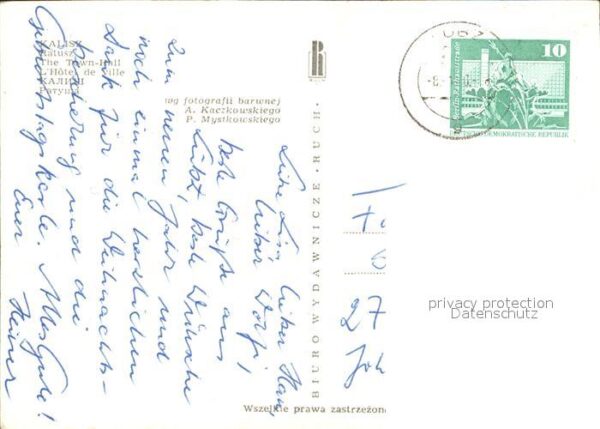 KALISZ
Ratusz
The Town-Hall
L'Hôtel de ville
КАЛИШ
Ратуша
wg fotografii barwnej
A. Kaczkowskiego
P. Mystkowskiego
BIURO WYDAWNICZE · RUCH ·
Wszelkie prawa zastrzeżone
10
Berlin-Rathausstraße
DEUTSCHE DEMOKRATISCHE REPUBLIK
Liebe Lisa, lieber Hans,
lieber Wolfi,
beste Grüße aus
Lübz, beste Wünsche
zum neuen Jahr und
noch einmal herzlichen
Dank für die Weihnachts-
und die
Geburtstagskarte. Alles Gute!
Euer Heiner
27
privacy protection
Datenschutz